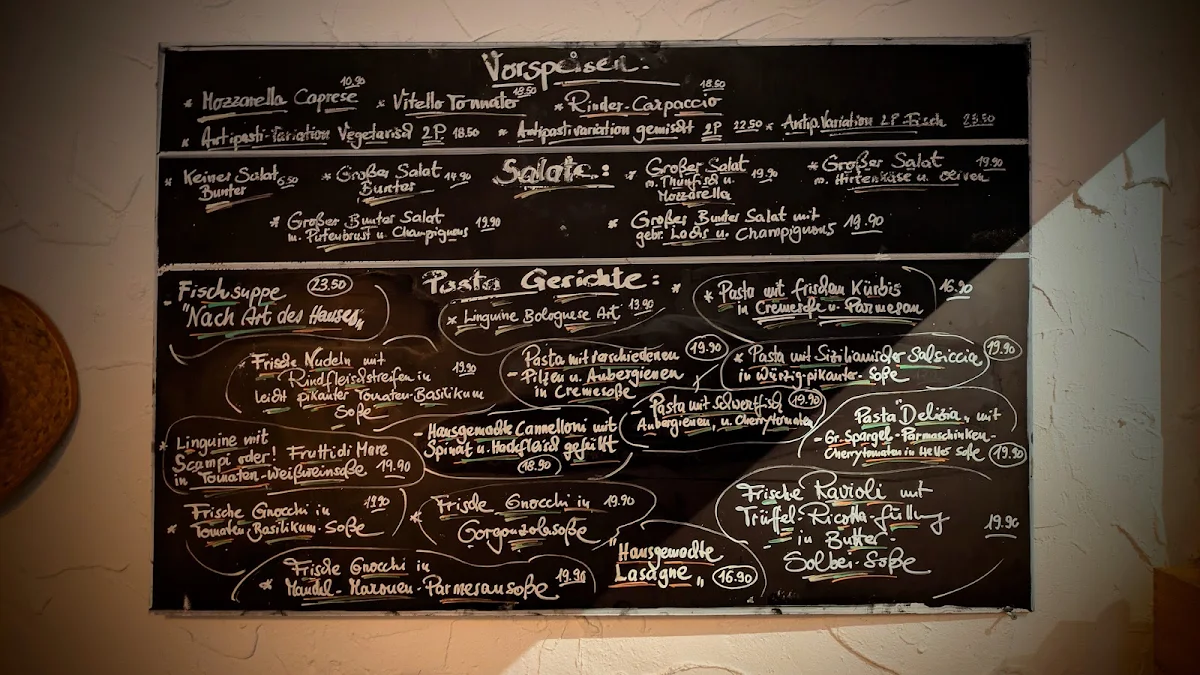 Vorspeisen:
* Mozzarella Caprese 10,90 * Vitello Tonnato 18.50 * Rinder-Carpaccio 18.50
* Antipasti-Variation Vegetarisch 2P. 18.50 * Antipastivariation gemischt 2P 22.50 * Antip. Variation 2P. Fisch 23.50
Salate:
* Kleiner Salat 6,50
Bunter
* Großer Salat 14.90
Bunter
* Großer Salat
m. Thunfisch u. 19.90
Mozzarella
* Großer Salat 19.90
m. Hirtenkäse u. Oliven
* Großer Bunter Salat 19.90
m. Putenbrust u. Champignons
* Großer Bunter Salat mit
gebr. Lachs u. Champignons 19.90
Pasta Gerichte:
- Fischsuppe 23.50
"Nach Art des Hauses"
* Linguine Bolognese Art 13.90
* Pasta mit frischem Kürbis 16.90
in Cremesoße u. Parmesan
* Frische Nudeln mit 19.90
Rindfleischstreifen in
leicht pikanter Tomaten-Basilikum
Soße
Pasta mit verschiedenen 19.90
- Pilzen u. Aubergienen
in Cremesoße
* Pasta mit Sizilianischer Salsiccia 19.90
in Würzig-pikanter-Soße
- Pasta mit Schwertfisch 19.90
Aubergienen, u. Cherrytomaten
Pasta "Delizia" mit
- Gr. Spargel-Parmaschinken-
Cherrytomaten in Heller Soße 19.90
* Linguine mit
Scampi oder! Frutti di Mare
in Tomaten-Weißweinsoße 19.90
- Hausgemachte Cannelloni mit
Spinat u. Hackfleisch gefüllt
18.90
* Frische Gnocchi in 19.90
Tomaten Basilikum-Soße
* Frische Gnocchi in 19.90
Gorgonzolasoße
Frische Ravioli mit
Trüfel-Ricotta-füllung
in Butter- 19.90
Salbei-Soße
Frische Gnocchi in
* Mandel-Maronen-Parmesansoße 19.90
"Hausgemachte
Lasagne" 16.90